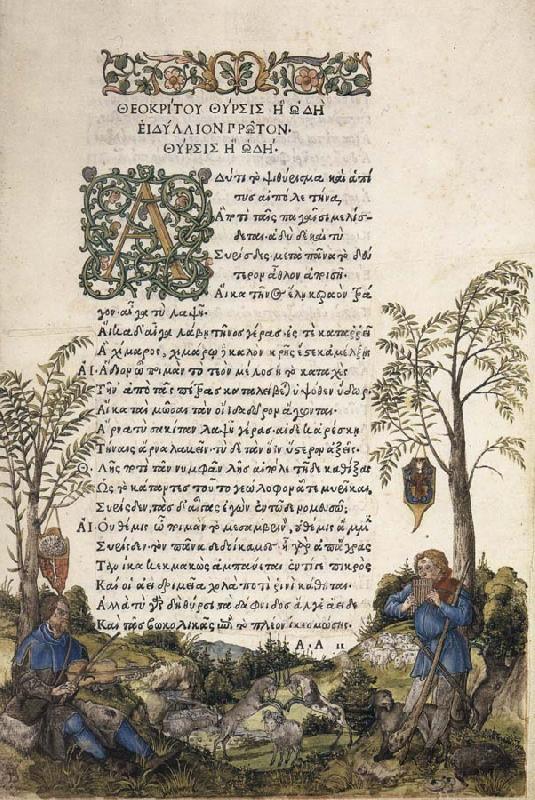 ΘΕΟΚΡΙΤΟΥ ΘΥΡΣΙΣ Ἢ ᾨΔΗ
ΕἸΔΥΛΛΙΟΝ ΠΡΩΤΟΝ·
ΘΥΡΣΙΣ Ἢ ᾨΔΗ·
Αδύ τι τὸ ψιθύρισμα καὶ ἁ πί
τυς αἰπόλε τήνα,
Ἁ ποτὶ ταῖς παγαῖσι μελίσ-
δεται· ἁδὺ δὲ καὶ τὺ
Συρίσδες· μετὰ πᾶνα τὸ δεύ
τερον ἆθλον ἀποισῇ.
Αἴκα τῆνος ἕλῃ κεραὸν τρά
γον αἶγα τὺ λαψῇ.
Αἴκα δ' αἶγα λάβῃ τῆνος γέρας ἐς τὲ καταρρεῖ
Ἁ χίμαρος, χιμάρω καλὸν κρῆς ἔστε κ' ἀμέλξῃς
ΑΙ· Ἅδιον ὦ ποιμὰν τὸ τεὸν μέλος ἢ τὸ καταχὲς
Τῆν' ἀπὸ τᾶς πέτρας καταλείβεται ὑψόθεν ὕδωρ·
Αἴκα ταὶ μῶσαι τὰν οἴιδα δῶρον ἄγωνται·
Ἄρνα τὺ σακίταν λαψῇ γέρας· αἰ δέ κ' ἀρέσκῃ
Τήναις ἄρνα λαβεῖν· τὺ δὲ τὰν ὄιν ὕστερον ἀξεῖς·
Θ. Λῇς ποτὶ τᾶν νυμφᾶν λῇς αἰπόλε τῇδε καθίξας
Ὡς τὸ κάταντες τοῦτο γεώλοφον ᾇτε μυρῖκαι,
Συρίσδεν, τὰς δ' αἶγας ἐγὼν ἐν τῷδε νομευσῶ;
ΑΙ Οὐ θέμις ὦ ποιμὰν τὸ μεσαμβρινὸν, οὐ θέμις ἄμμιν
Συρίσδεν· τὸν πᾶνα δεδοίκαμες· ἦ γὰρ ἀπ' ἄγρας
Τανίκα κεκμακὼς ἀμπαύεται ἐντὶ γε πικρὸς
Καί οἱ ἀεὶ δριμεῖα χολὰ ποτὶ ῥινὶ κάθηται.
Ἀλλὰ τὺ γὰρ δὴ θύρσι τὰ δάφνιδος ἄλγε' ἄειδες
Καὶ τᾶς βωκολικᾶς ἐπὶ τὸ πλέον ἵκεο μώσης·
Α.Α ιι